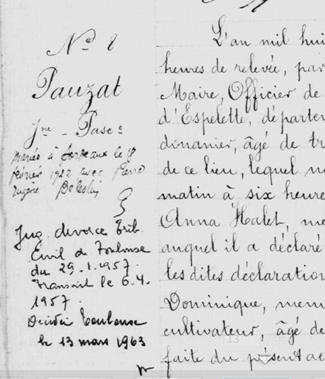 Nº 8
Pauzat
Jne - Pasc=
Mariée à Bordeaux le 18
février 1922 avec Pierre
Eugène
Jug. divorce Trib.
Civil de Toulouse
du 29.1.1957.
Transcrit le 6.4.
1957.
Décédée Toulouse
le 13 mars 1963
L'an mil hui
heures de relevée, par
Maire, Officier de
d'Espelette, départem
douanier, âgé de tr
de ce lieu, lequel n
matin à six heure
Anna Halet, me
auquel il a déclaré
les dites déclaration
Dominique, menu
cultivateur, âgé de
faite du présent ac